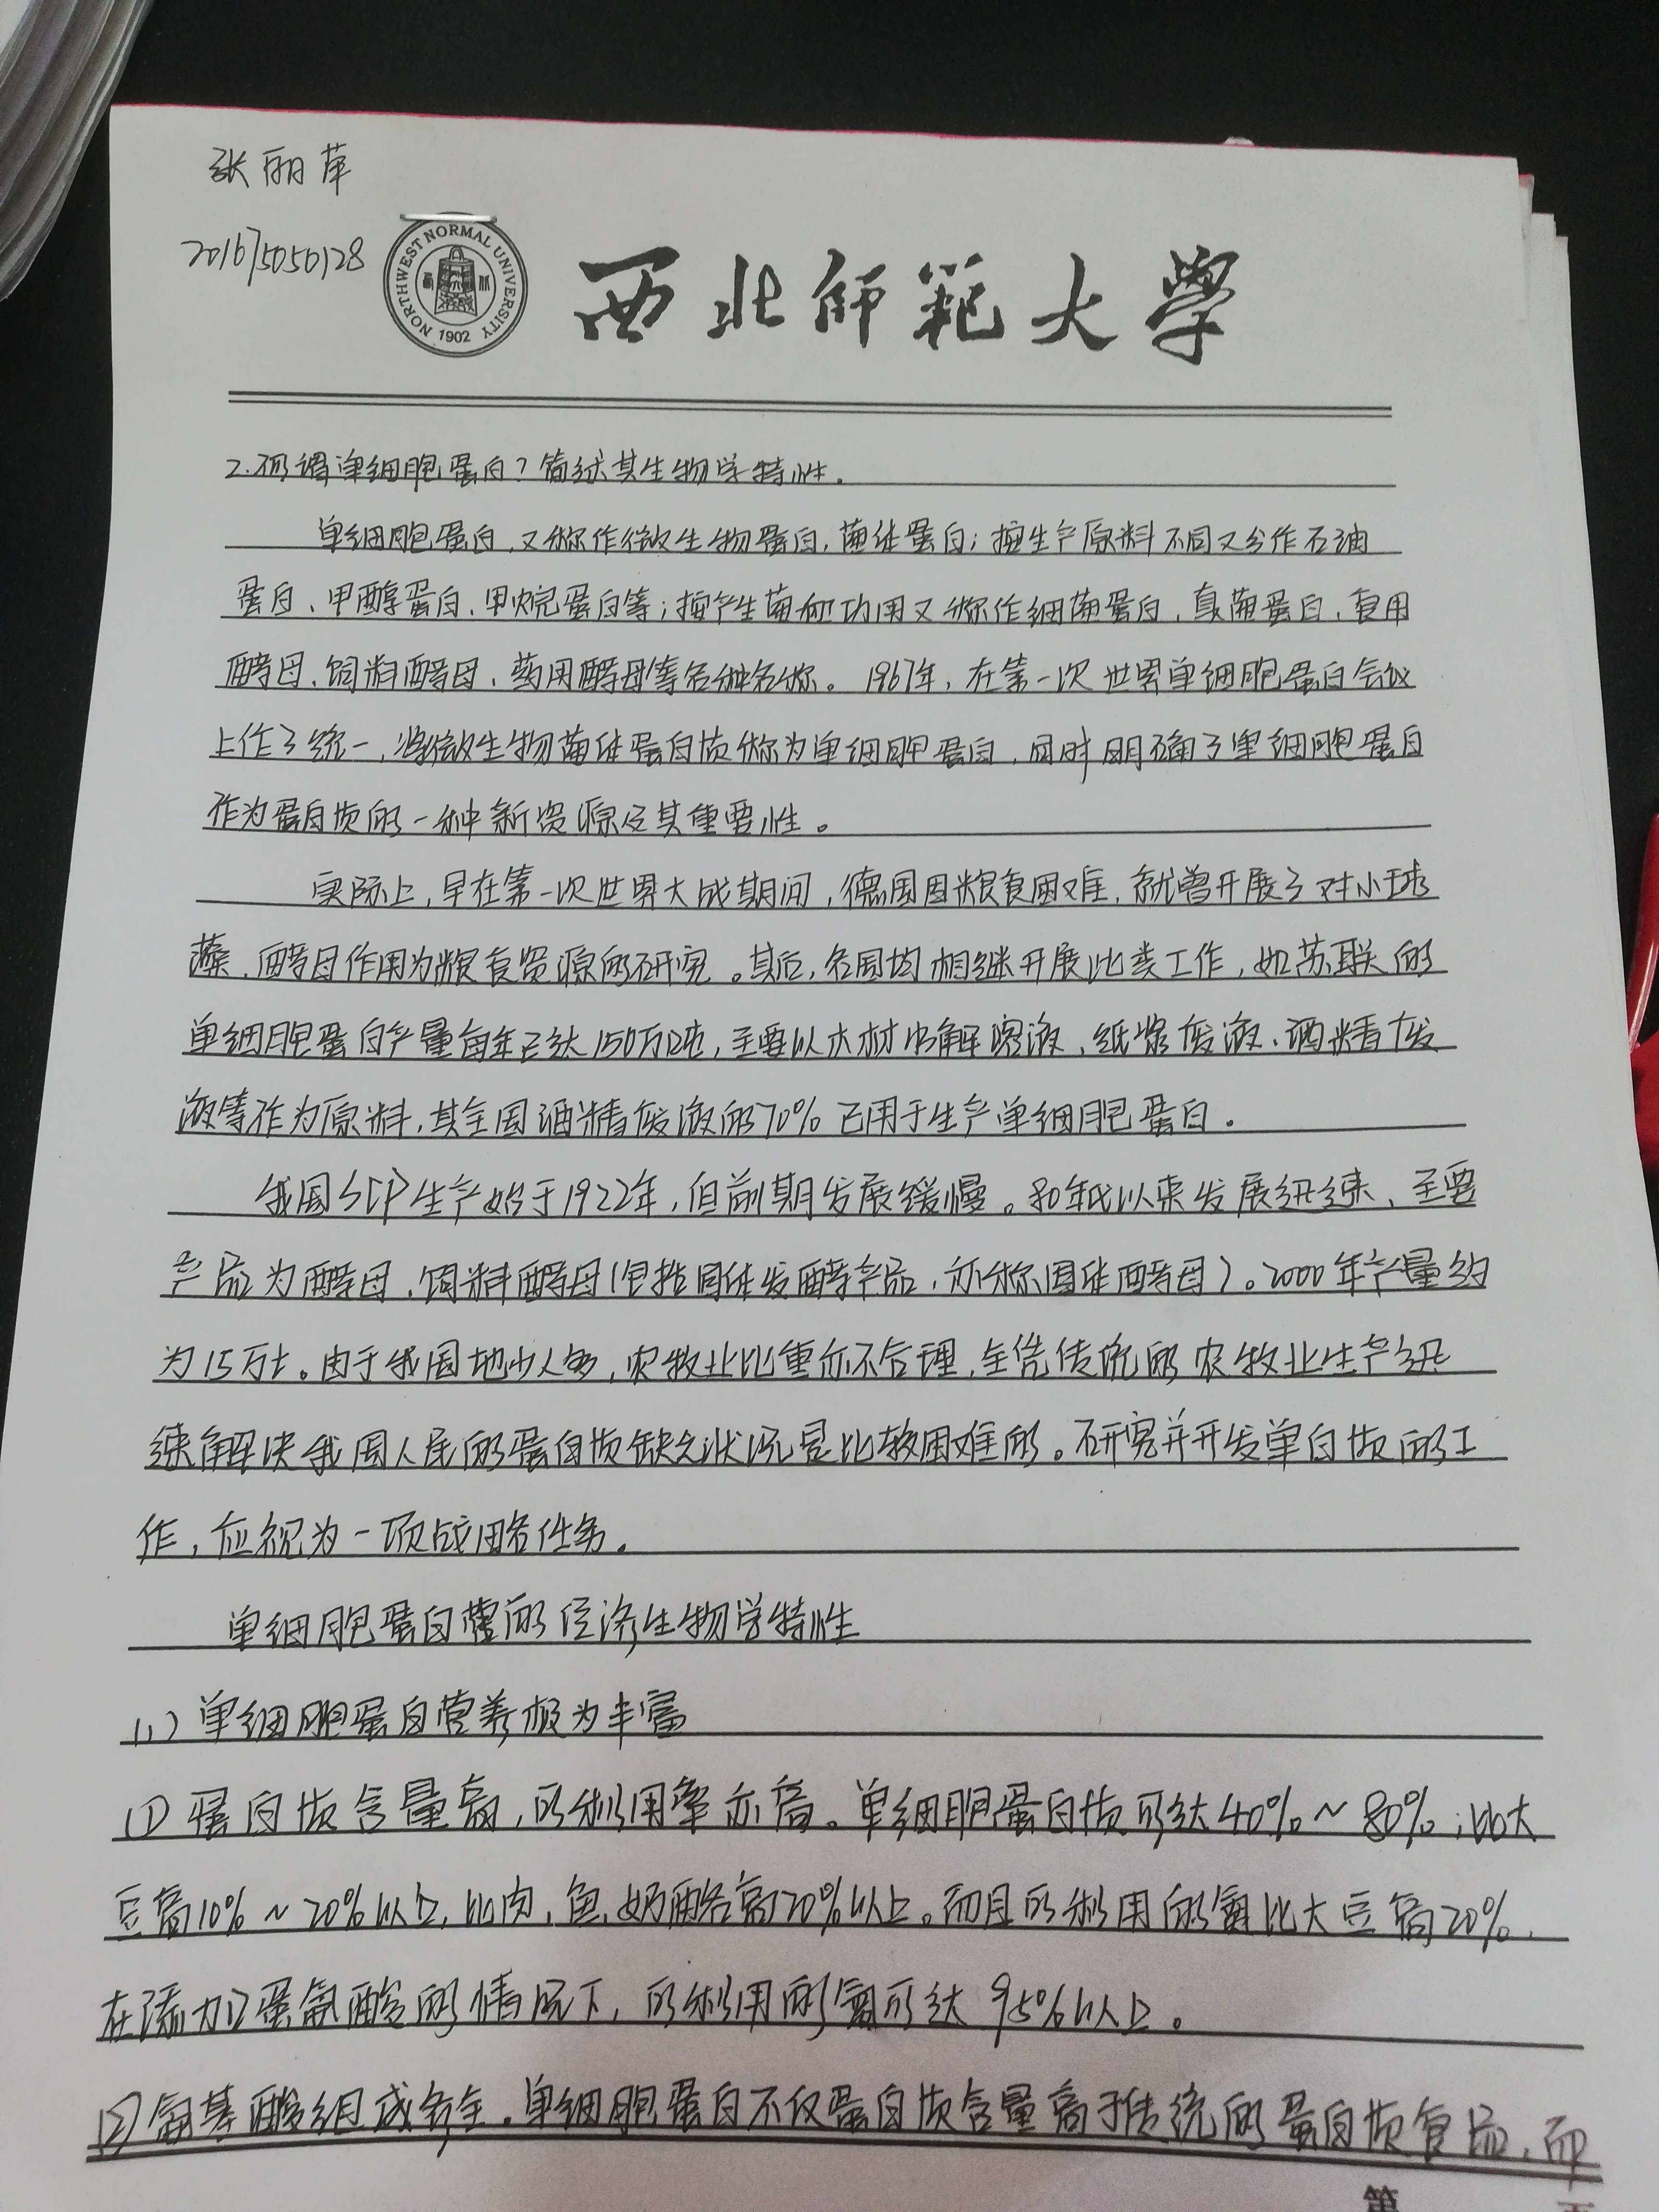 张丽萍
201675050128
NORTHWEST NORMAL UNIVERSITY
1902
西北师范大学
2.何谓单细胞蛋白？简述其生物学特性。
单细胞蛋白，又称作微生物蛋白，菌体蛋白；按生产原料不同又分作石油
蛋白、甲醇蛋白、甲烷蛋白等；按产生菌和功用又称作细菌蛋白，真菌蛋白，食用
酵母、饲料酵母、药用酵母等各种名称。1967年，在第一次世界单细胞蛋白会议
上作了统一，将微生物菌体蛋白质称为单细胞蛋白，同时明确了单细胞蛋白
作为蛋白质的一种新资源及其重要性。
实际上，早在第一次世界大战期间，德国因粮食困难，就曾开展了对小球
藻、酵母作用为粮食资源的研究。其后，各国均相继开展此类工作，如苏联的
单细胞蛋白产量每年已达150万吨，主要以木材水解溶液、纸浆废液、酒精废
液等作为原料，其全国酒精废液的70%已用于生产单细胞蛋白。
我国SCP生产始于1922年，但前期发展缓慢。80年代以来发展迅速，主要
产品为酵母，饲料酵母（包括固体发酵产品，亦称固体酵母）。2000年产量约
为15万t。由于我国地少人多，农牧业比重亦不合理，全凭传统的农牧业生产迅
速解决我国人民的蛋白质缺乏状况是比较困难的。研究并开发单白质的工
作，应视为一项战略任务。
单细胞蛋白的经济生物学特性
(1)单细胞蛋白营养极为丰富
①蛋白质含量高，可利用率亦高。单细胞蛋白质可达40%~80%；比大
豆高10%~20%以上，比肉、鱼、奶酪高20%以上。而且可利用的氮比大豆高20%，
在添加蛋氨酸的情况下，可利用的氮可达95%以上。
②氨基酸组成齐全。单细胞蛋白不仅蛋白质含量高于传统的蛋白质食品，而
第 页